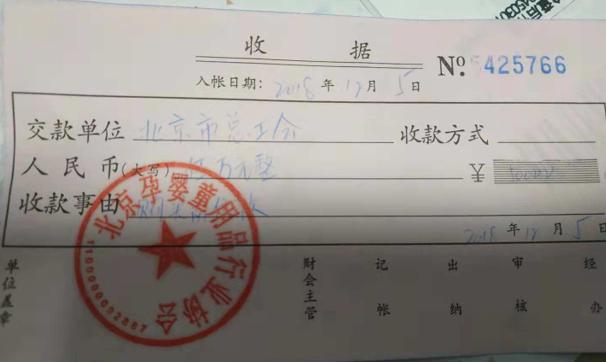 收 据
No. 5425766
入帐日期: 2018 年 12 月 5 日
交款单位 北京市总工会 收款方式
人民币(大写) 伍万元整 ¥
收款事由
2018 年 12 月 5 日
北京孕婴童用品行业协会
单位盖章 财会主管 记帐 出纳 审核 经办